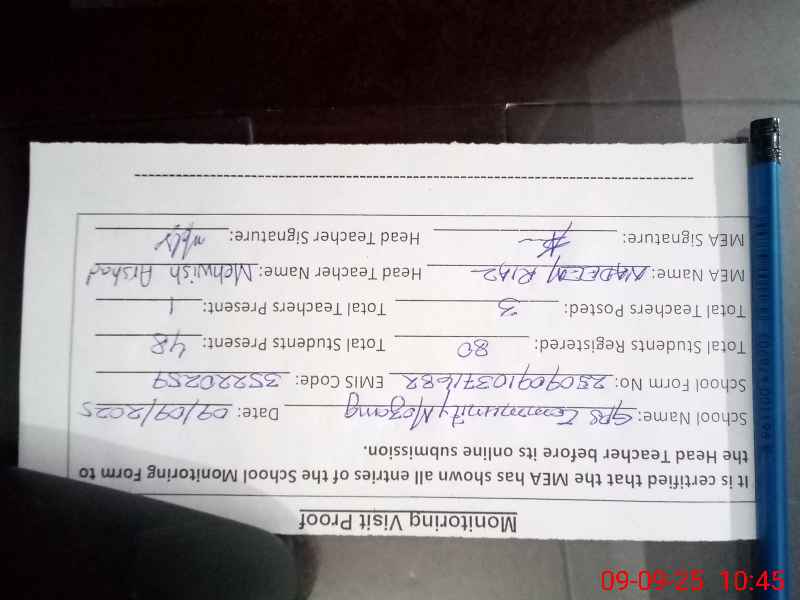 Monitoring Visit Proof
It is certified that the MEA has shown all entries of the School Monitoring Form to
the Head Teacher before its online submission.
School Name: GPS Community Mozang Date: 09/09/2025
School Form No: EMIS Code: 35220259
Total Students Registered: 80 Total Students Present: 48
Total Teachers Posted: 3 Total Teachers Present: 1
MEA Name: NADEEM RIAZ Head Teacher Name: Mehwish Arshad
MEA Signature: Head Teacher Signature:
09-09-25 10:45